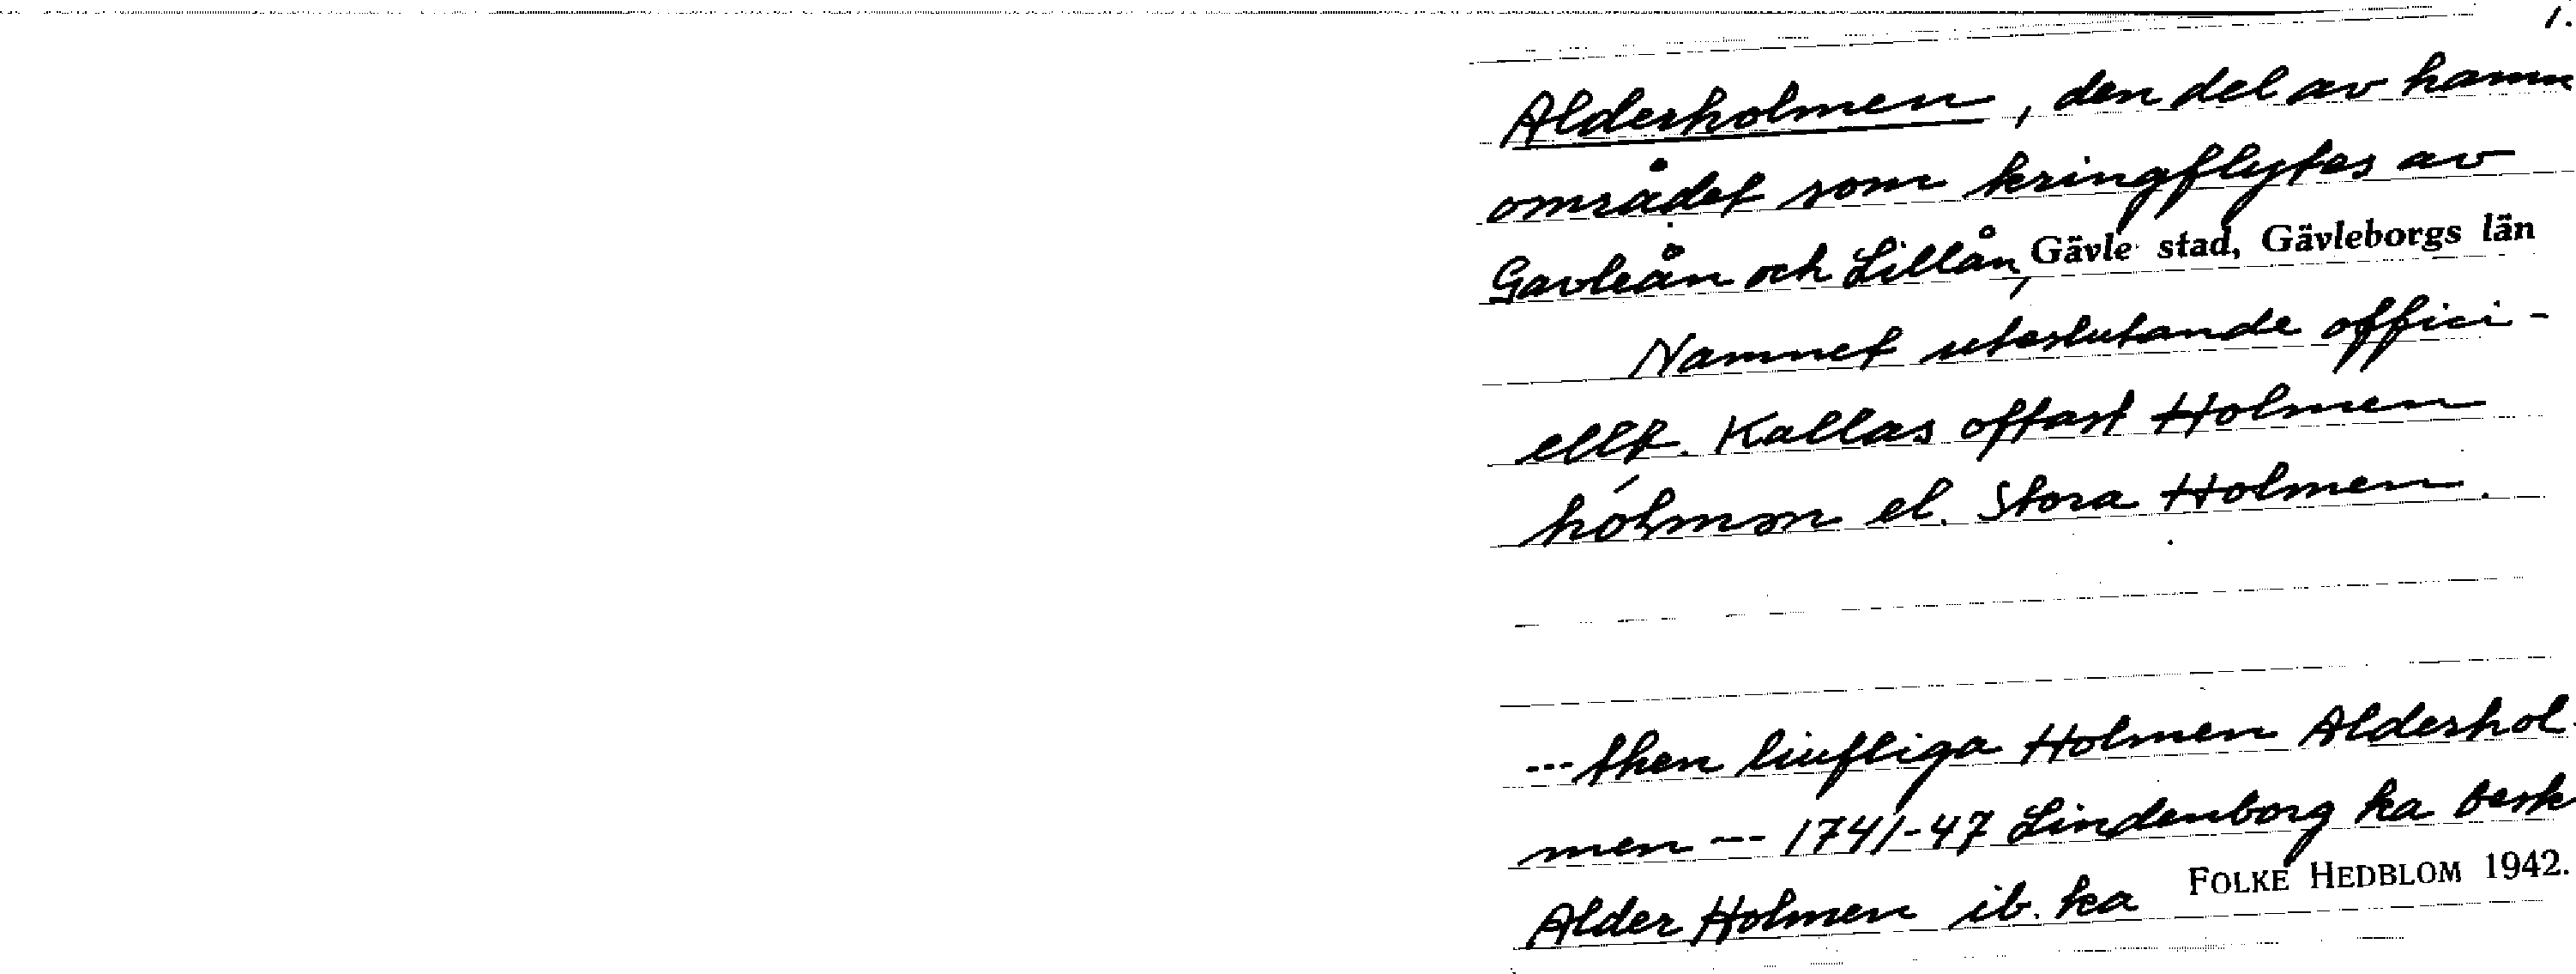 1.
Alderholmen, den del av hamn
området som kringflytes av
Gavleån och Lillån, Gävle stad, Gävleborgs län
Namnet uteslutande offici-
ellt. Kallas oftast Holmen
hólmən el. Stora Holmen.
--- then liufliga Holmen Alderhol-
men --- 1741-47 Lindenborg ka besk
Alder Holmen ib. ka FOLKE HEDBLOM 1942.